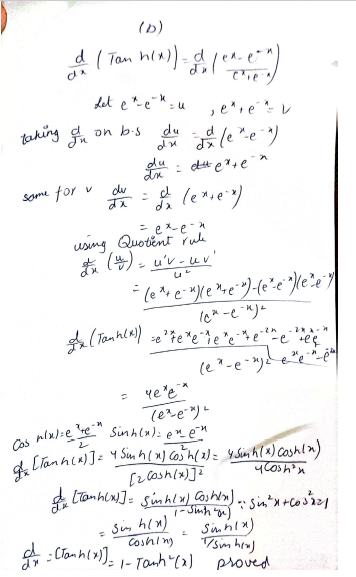 (b)
d/dx (Tan h(x)) = d/dx (e^x - e^-x / e^x + e^-x)
Let e^x - e^-x = u , e^x + e^-x = v
taking d/dx on b.s du/dx = d/dx (e^x - e^-x)
du/dx = e^x + e^-x
same for v dv/dx = d/dx (e^x + e^-x)
= e^x - e^-x
using Quotient rule
d/dx (u/v) = u'v - uv' / u^2
= (e^x + e^-x)(e^x + e^-x) - (e^x - e^-x)(e^x - e^-x)
(e^x - e^-x)^2
d/dx (Tanh(x)) = e^2x + e^x e^-x + e^x e^-x + e^-2x - e^-2x + e^x e^-x
(e^x - e^-x)^2 e^x e^-x
= 4e^x e^-x
(e^x - e^-x)^2
Cos h(x) = e^x + e^-x / 2 Sinh(x) = e^x - e^-x
d/dx [Tanh(x)] = 4 Sinh(x) Cosh(x) / [2 Cosh(x)]^2 = 4 Sinh(x) Cosh(x) / 4 Cosh^2 x
d/dx [Tanh(x)] = Sinh(x) Cosh(x) / 1 - Sinh^2(x) ∵ Sin^2 x + Cos^2 x = 1
= Sin h(x) / Cosh(x) = Sinh(x) / 1/Sinh(x)
d/dx = [Tanh(x)] = 1 - Tanh^2(x) proved